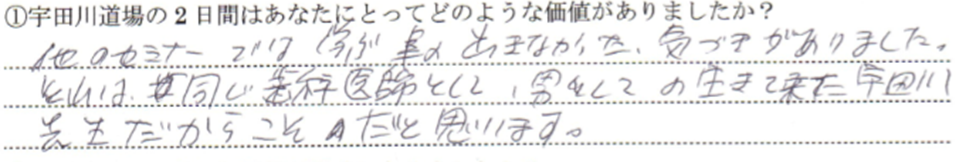 ①宇田川道場の2日間はあなたにとってどのような価値がありましたか？
他のセミナーでは学ぶ事の出きなかった、気づきがありました。
それは、同じ歯科医師として、男としての生きて来た宇田川
先生だからこそだと思います。